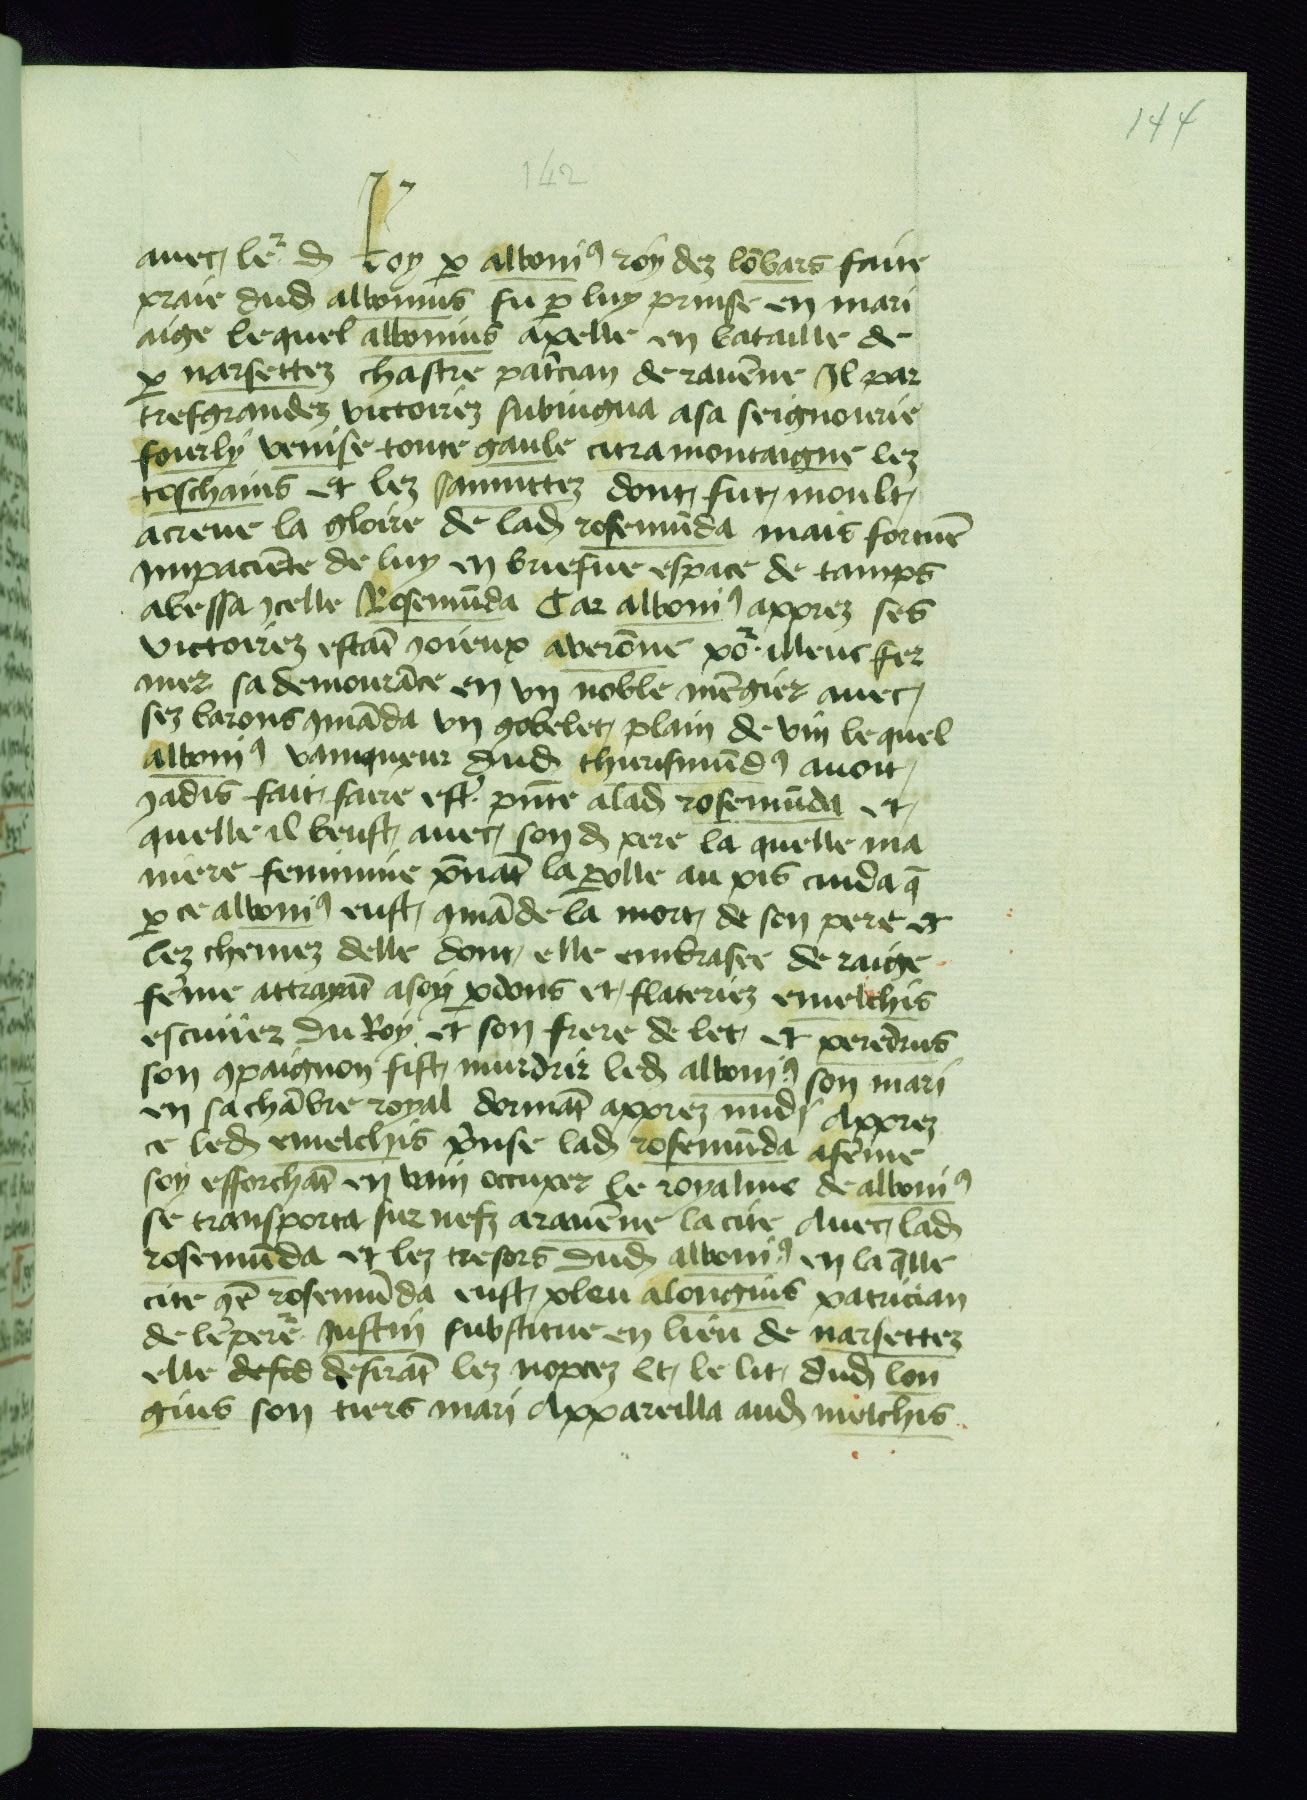 144
142
avec le͛ d roy ꝑ albouniꝰ roy dez lōbars faite
praie dud albonius fu ꝑ luy prinse en mari
aige lequel albonius apelle en bataille de
ꝑ narsettez chastre patcian de ravēne Il par
tresgrandez victoirez subiugua a sa seignourie
fourly venise toute gaule citramontaigne lez
toschains et lez samnittez dont fut moult
acreue la gloire de lad rosemūda mais fortune
impaciēte de luy en briefue espace de tamps
abessa ycelle Rosemūda Car albouniꝰ apprez ses
victoirez estāt joieux a verōne po͛ illeuc fer
mer sa demourāce en vn noble mēgier avec
sez barons 9māda vn gobelet plain de vin lequel
albouniꝰ vainqueur dud thurismūdꝰ avoit
jadis fait faire est͛ pn̄te a lad rosemūda et
quelle il beust avec son d pere la quelle ma
niere feminine pn̄nāt la ꝑolle au pis cuida q̄
ꝑ ce albouniꝰ eust 9māde la mort de son pere et
lez chemez delle dont elle embrasee de raige
fēme attrayāt a soy ꝑ dons et flateriez emelchis
escuiiez du Roy et son frere de let et peredeus
son 9paignon fist murdrir led albouniꝰ son mari
en sa chābre royal dormāt apprez midi Apprez
ce led emelchis p̄nse lad rosemūda a fēme
soy efforchāt en vain occuper le royalme de albouniꝰ
se transporta sur nefz a ravēne la cite Avec lad
rosemūda et lez tresors dud albouniꝰ en la q̄lle
cite 9e͂ rosemūda eust pleu a longius patrician
de lē͛pere͛ Justin substitue en lieu de narsettez
elle desid desirāt lez nopcez Et le lit dud lon
gius son tiers mari Appareilla aud melchis